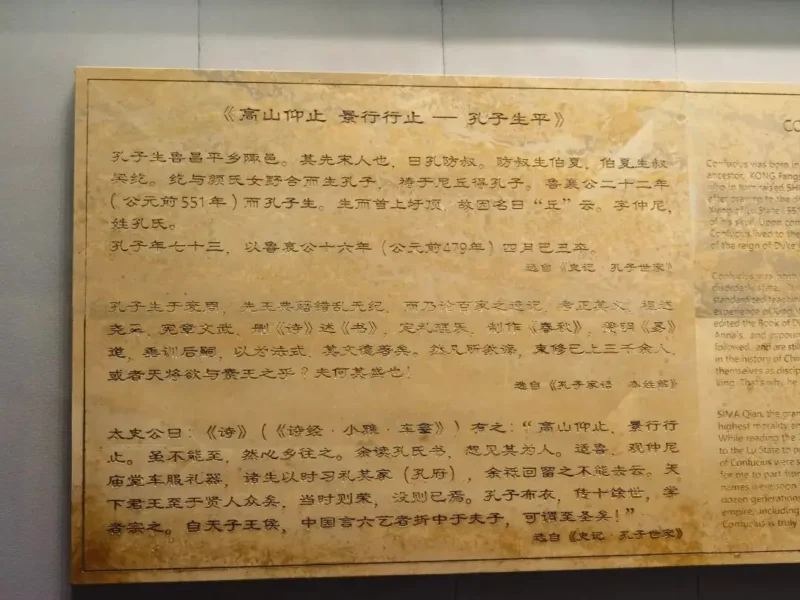 《高山仰止 景行行止 — 孔子生平》
孔子生鲁昌平乡陬邑。其先宋人也，曰孔防叔。防叔生伯夏，伯夏生叔
梁纥。纥与颜氏女野合而生孔子，祷于尼丘得孔子。鲁襄公二十二年
（公元前551年）而孔子生。生而首上圩顶，故因名曰“丘”云。字仲尼，
姓孔氏。
孔子年七十三，以鲁哀公十六年（公元前479年）四月己丑卒。
选自《史记·孔子世家》
孔子生于衰周，先王典籍错乱无纪，而乃论百家之遗记，考正其义，祖述
尧舜，宪章文武，删《诗》述《书》，定礼理乐，制作《春秋》，赞明《易》
道，垂训后嗣，以为法式，其文德著矣。然凡所教诲，束修已上三千余人，
或者天将欲与素王之乎？夫何其盛也！
选自《孔子家语 本姓解》
太史公曰：《诗》（《诗经·小雅·车舝》）有之：“高山仰止，景行行
止。虽不能至，然心乡往之。余读孔氏书，想见其为人。适鲁，观仲尼
庙堂车服礼器，诸生以时习礼其家（孔府），余祗回留之不能去云。天
下君王至于贤人众矣，当时则荣，没则已焉。孔子布衣，传十馀世，学
者宗之。自天子王侯，中国言六艺者折中于夫子，可谓至圣矣！”
选自《史记·孔子世家》
CO
Confucius was born in
ancestor, KONG Fang
who in turn raised SH
after praying to the
of his skull. Upon
Confucius lived to the
of the reign of Duke
Confucius was born
disorderly state.
standardized teaching
experience of King
edited the Book of D
Annals, and
followed, and are still
in the history of Chin
themselves as discip
king. That's why he
SIMA Qian, the gran
highest morality an
While reading the
to the Lu State to pa
of Confucius were s
for me to part from
names were soon
dozen generations
empire, including
Confucius is truly